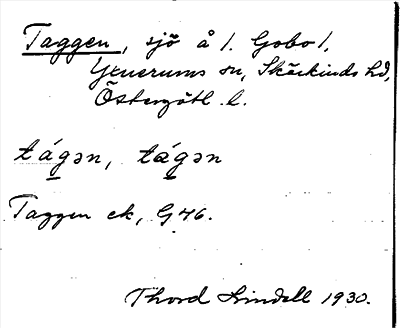 Taggen, sjö å l. Gobo l,
Yxnerums sn, Skärkinds hd,
Östergötl. l.
tágən, tágən
Taggen ek, G 46.
Thord Lindell 1930.